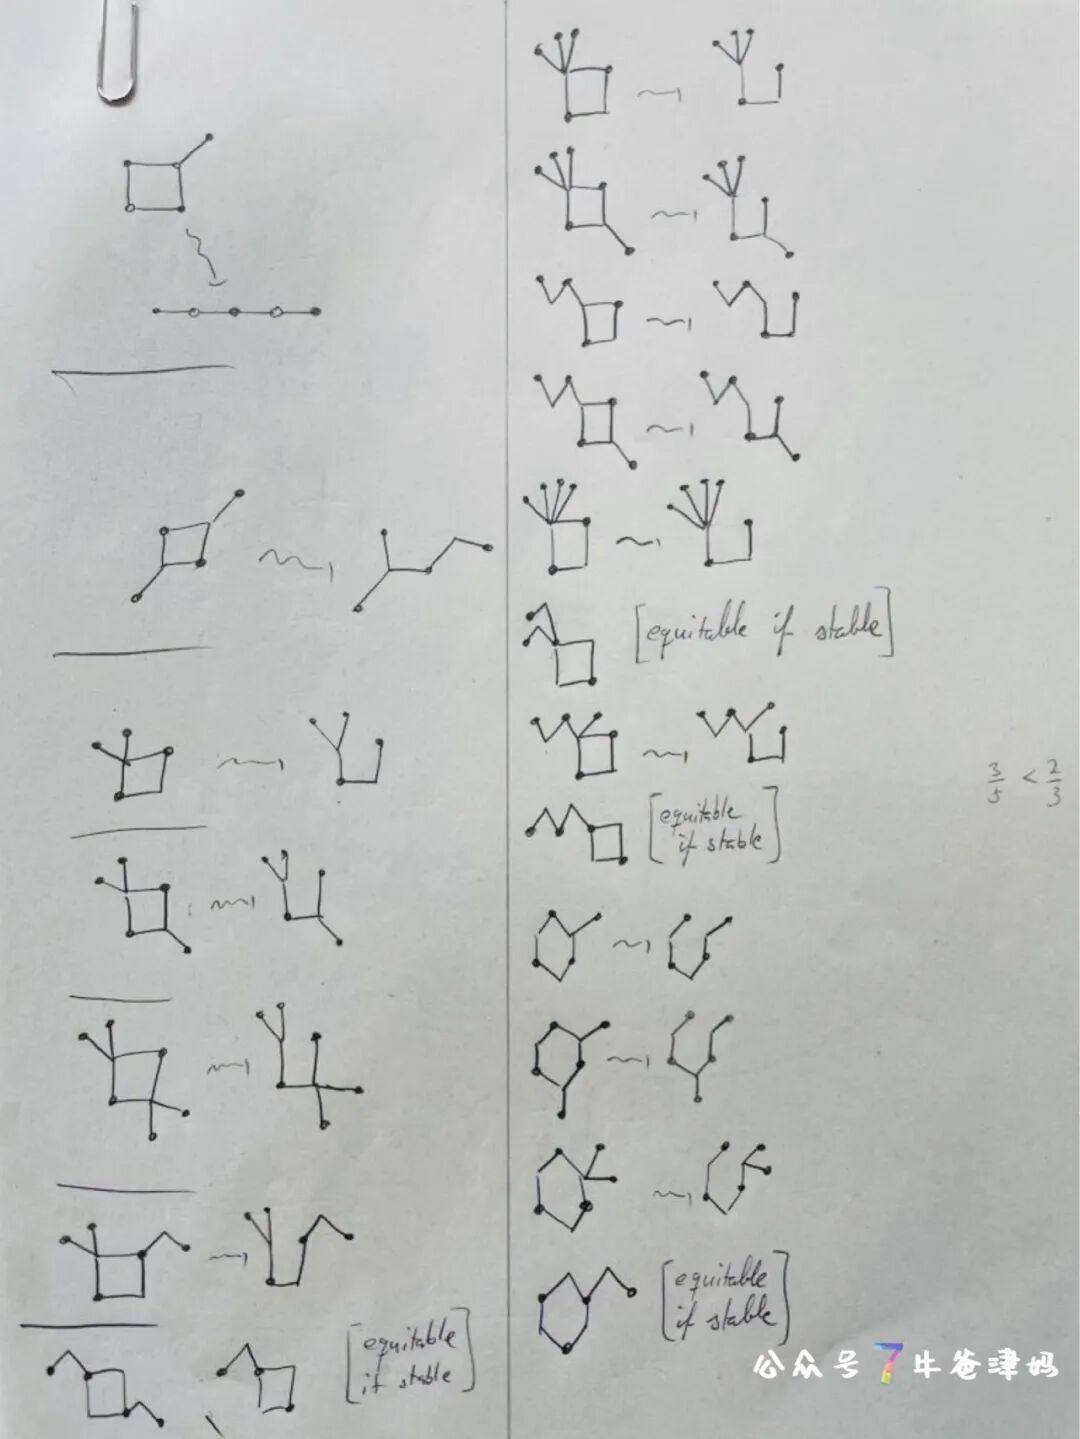 [equitable
if stable]
[equitable if stable]
[equitable
if stable]
[equitable
if stable]
3/5 < 2/3
公众号 7 牛爸津妈